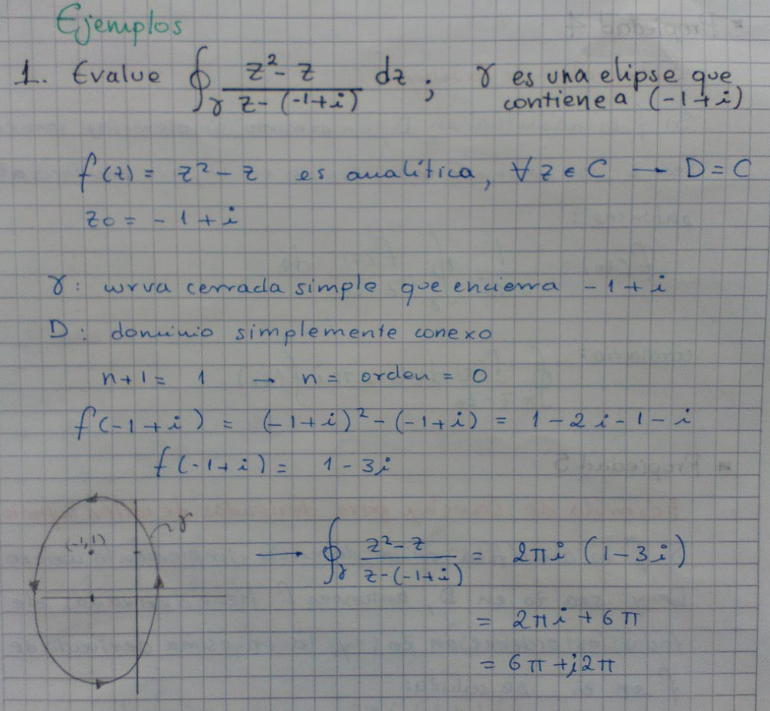 Ejemplos
1. Evalue ∮γ (z² - z)/(z - (-1+i)) dz ; γ es una elipse que
contiene a (-1+i)
f(z) = z² - z es analítica, ∀ z ∈ C → D = C
z0 = -1 + i
γ: curva cerrada simple que encierra -1 + i
D: dominio simplemente conexo
n+1 = 1 → n = orden = 0
f(-1+i) = (-1+i)² - (-1+i) = 1 - 2i - 1 - i
f(-1+i) = 1 - 3i
γ
(-1,1)
→ ∮γ (z² - z)/(z - (-1+i)) = 2πi (1 - 3i)
= 2πi + 6π
= 6π + j2π